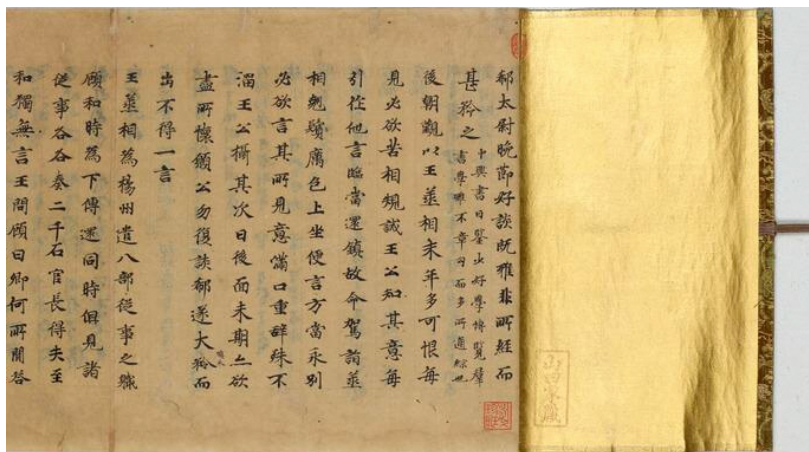 郗太尉晚節好談既雅非所經而
甚矜之
中興書曰鑒少好學博覽群
書學雖不章句而多所通綜也
後朝觀以王丞相末年多可恨每
見必欲苦相規誡王公知其意每
引作他言臨當還鎮故命駕詣丞
相翹鬚厲色上坐便言方當永別
必欲言其所見意滿口重辭殊不
溜王公攝其次曰後面未期亦欲
盡所懷願公勿復談郗遂大矜而
出不得一言
王丞相為揚州遣八部從事之職
顧和時為下傳還同時俱見諸
從事各各奏二千石官長得失至
和獨無言王問顧曰卿何所聞答